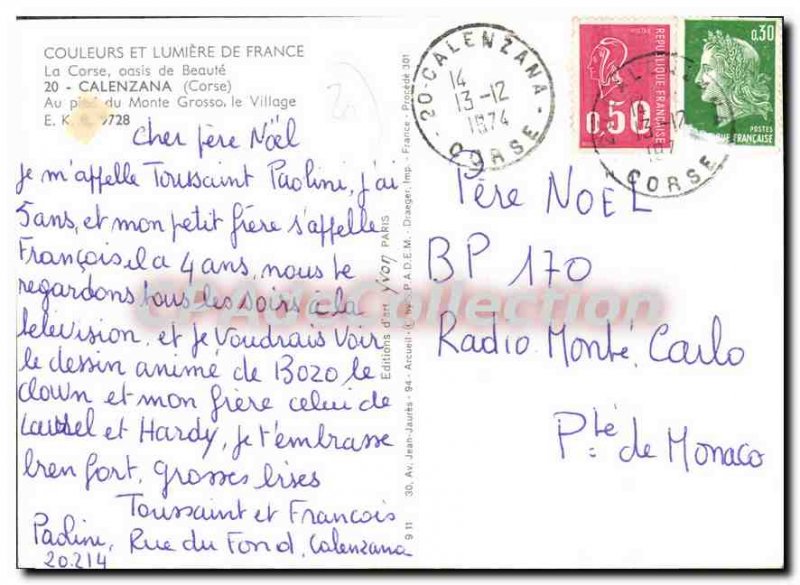 COULEURS ET LUMIÈRE DE FRANCE
La Corse, oasis de Beauté
20 - CALENZANA (Corse)
Au pied du Monte Grosso, le Village
E. K. 9728
Cher père Noël
Je m'appelle Toussaint Paolini, j'ai
5 ans, et mon petit frère s'appelle
François il a 4 ans, nous te
regardons tous les soirs à la
télévision, et je voudrais voir
le dessin animé de Bozo le
clown et mon frère celui de
Laurel et Hardy, je t'embrasse
bien fort, grosses bises
Toussaint et François
Paolini, Rue du Fond, Calenzana
20.214
Editions d'art yvon PARIS
9 11 30, Av. Jean-Jaurès - 94 - Arcueil - S.P.A.D.E.M. - Draeger, Imp. - France - Procédé 301
20-CALENZANA
14
13-12
1974
CORSE
REPUBLIQUE FRANÇAISE
0,50
0,30
POSTES
FRANÇAISE
13-12
197
CORSE
Père NOEL
BP 170
Radio Monté Carlo
Pté de Monaco
CPAdeCollection